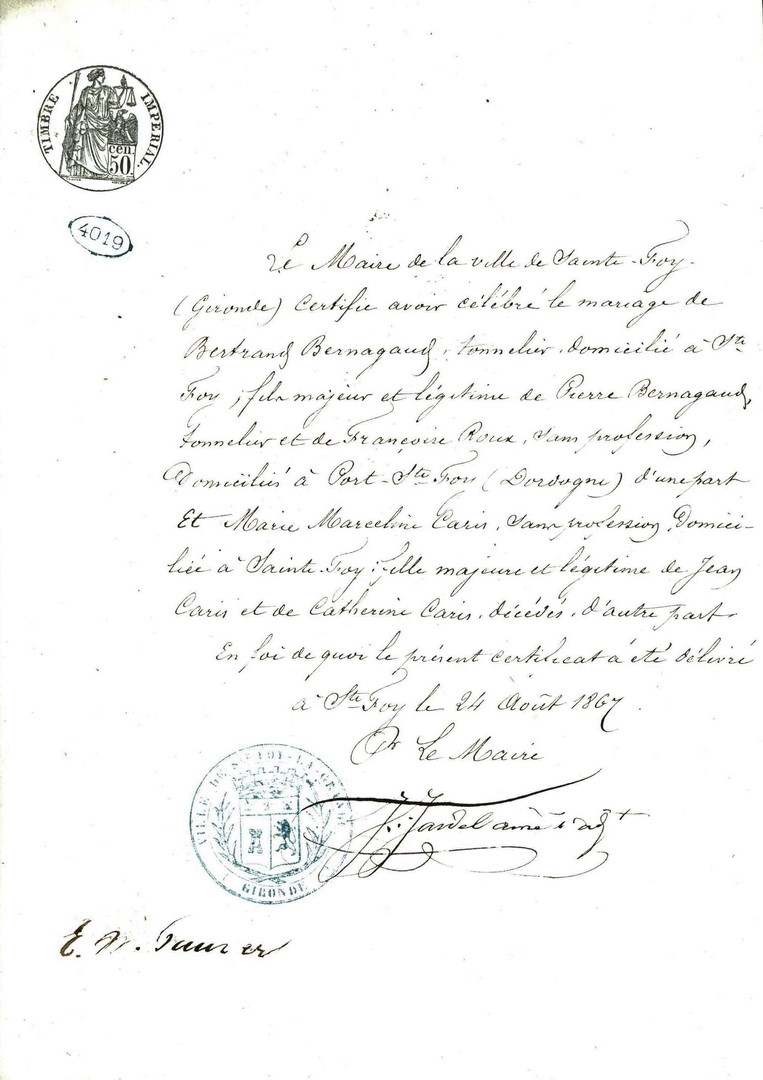 TIMBRE IMPERIAL
cen.
50.
4019
Le Maire de la ville de Sainte-Foy-
(Gironde) Certifie avoir célébré le mariage de
Bertrand Bernagaud, tonnelier, domicilié à Ste
Foy, fils majeur et légitime de Pierre Bernagaud,
tonnelier et de Françoise Roux, sans profession,
Domiciliés à Port-Ste Foy (Dordogne) d'une part
Et Marie Marceline Caris, sans profession, Domici-
liée à Sainte-Foy; fille majeure et légitime de Jean
Caris et de Catherine Caris, décédés, d'autre part
En foi de quoi le présent certificat a été délivré
à Ste Foy le 24 Août 1867.
Pr Le Maire
Jardel aîné
VILLE DE STE FOY-LA-GRANDE
GIRONDE
E. N.